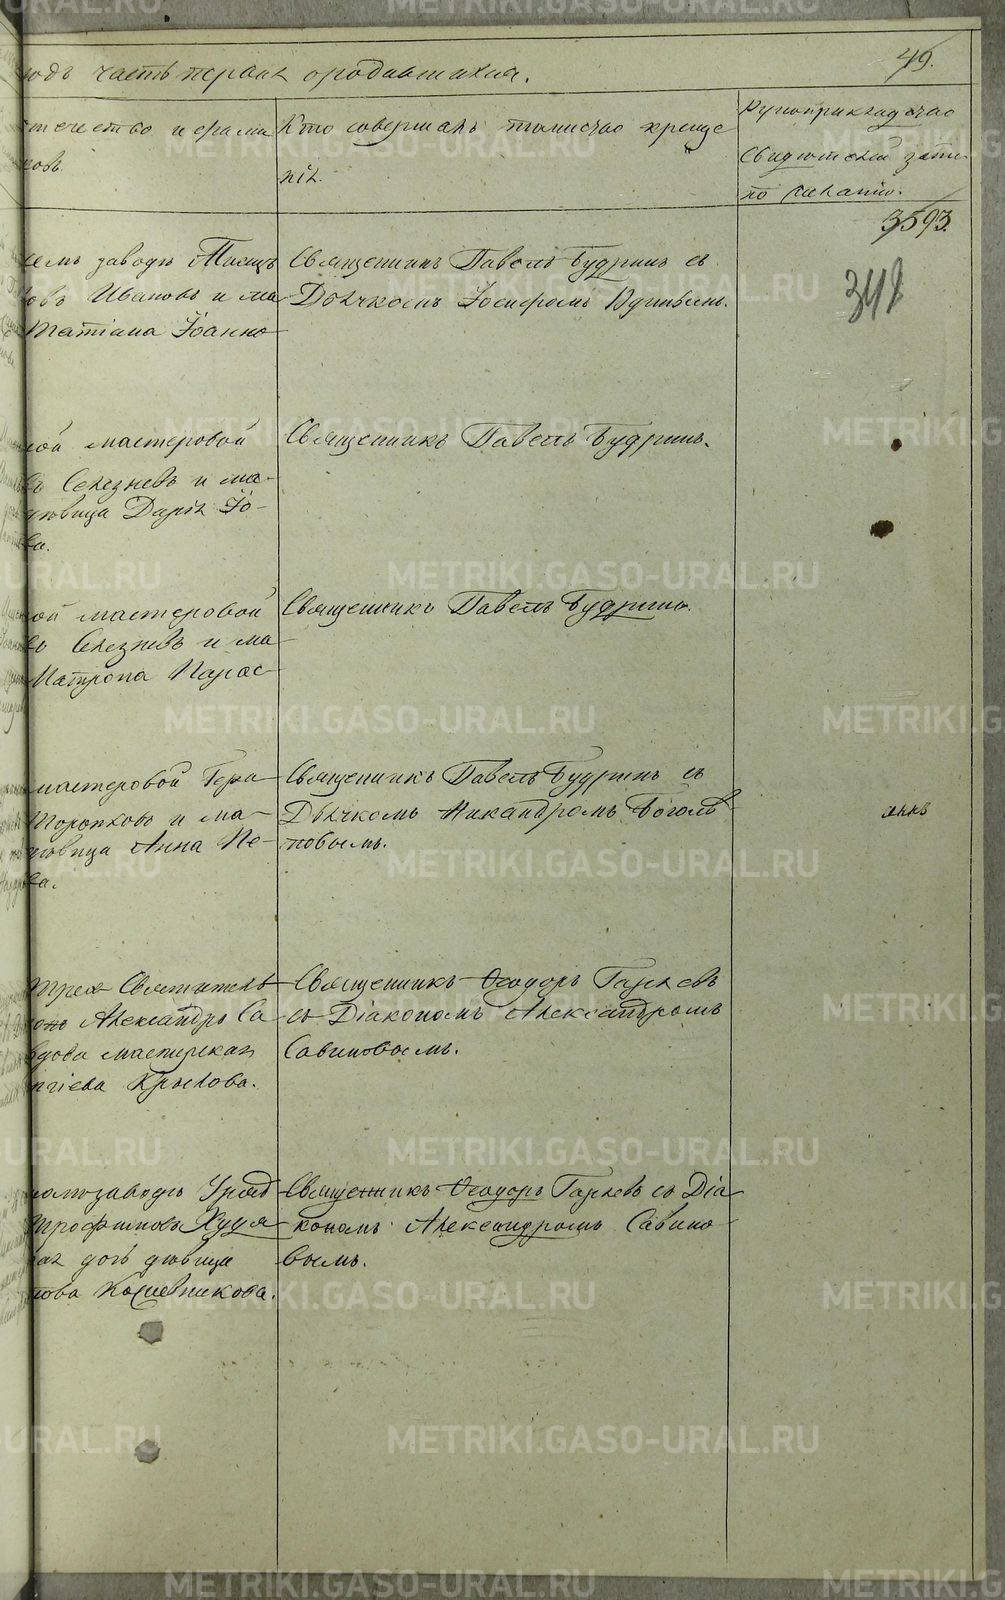 49.
годъ часть первая о родившихся.
отечество и фами
ковъ.
Кто совершалъ таинство креще
нія.
Рукоприкладство
свидѣтелей записи
по желанію.
3593.
342
заводъ
овъ Ивановъ и
Татіана Іоанно
Священникъ Павелъ Будринъ съ
Дьячкомъ Іосифомъ
мастеровой
Селезневъ и за-
Дарія Іо-
ва.
Священникъ Павелъ Будринъ.
мастеровой
Селезневъ и
Матрона Парас-
Священникъ Павелъ Будринъ.
мастеровой Гера
Торопково и за-
Анна Пе-
ва.
Священникъ Павелъ Будринъ съ
Дьячкомъ Никандромъ Боголѣ-
повымъ.
Трех Святитель
Александръ Са
вдова мастерская
гіева Крылова.
Священникъ Ѳеодоръ Гаряевъ
съ Діакономъ Александромъ
Савиновымъ.
заводъ Уряд
Трофимовъ Худя
дочь дѣвица
нова Кожевникова.
Священникъ Ѳеодоръ Гаряевъ съ Діа
кономъ Александромъ Савино
вымъ.
METRIKI.GASO-URAL.RU